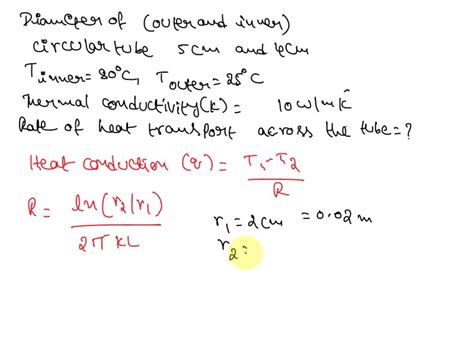 Diameter of (outer and inner)
circular tube 5cm and 4cm
T inner = 80°C, T outer = 25°C
Thermal conductivity (k) = 10 W/m K
Rate of heat transport across the tube = ?
Heat conduction (q) = T₁-T₂ / R
R = ln(r₂/r₁) / 2π KL
r₁ = 2cm = 0.02 m
r₂ =